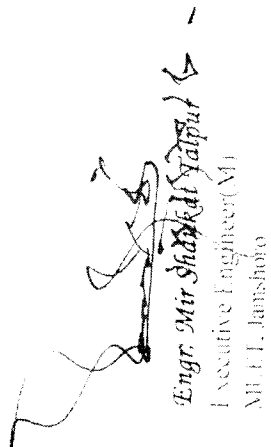 Engr. Mir Shaukat Talpur
Executive Engineer(M)
MUET, Jamshoro